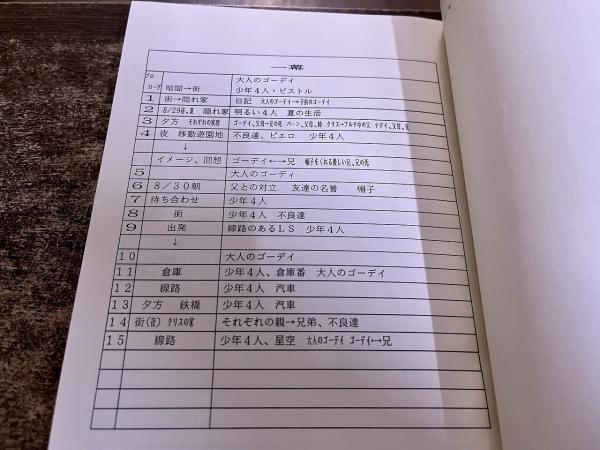 一幕
プロ 大人のゴーデイ
ローグ 暗闇→街 少年４人・ピストル
1 街→隠れ家 日記 大人のゴーデイ→子供のゴーデイ
2 8/29昼、夏 隠れ家 明るい４人 夏の生活
3 夕方 それぞれの家庭 ゴーデイ、父母→兄の死 バーン、父母、姉 クリス→アル中の父 テディ、父母、兄
4 夜 移動遊園地 不良達、ピエロ 少年４人
↓
イメージ、回想 ゴーデイ←→兄 帽子をくれる優しい兄、兄の死
5 大人のゴーディ
6 ８／３０朝 父との対立 友達の名誉 帽子
7 待ち合わせ 少年４人
8 街 少年４人 不良達
9 出発 線路のあるＬＳ 少年４人
↓
10 大人のゴーデイ
11 倉庫 少年４人、倉庫番 大人のゴーデイ
12 線路 少年４人 汽車
13 夕方 鉄橋 少年４人 汽車
14 街(夜) クリスの家 それぞれの親→兄弟、不良達
15 線路 少年４人、星空 大人のゴーデイ ゴーデイ←→兄